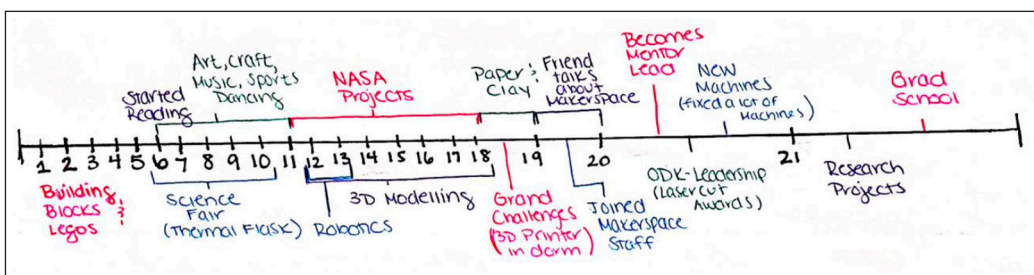 Started
Reading
Art, Craft,
Music, Sports
Dancing
NASA
Projects
Paper &
Clay
Friend
talks
about
Makerspace
Becomes
Mentor
Lead
New
Machines
(fixed a lot of
Machines)
Grad
School
1 2 3 4 5 6 7 8 9 10 11 12 13 14 15 16 17 18 19 20 21
Building
Blocks &
Legos
Science
Fair
(Thermal Flask)
Robotics
3D Modelling
Grand
Challenges
(3D Printer
in dorm)
Joined
Makerspace
Staff
ODK-Leadership
(Laser cut
Awards)
Research
Projects